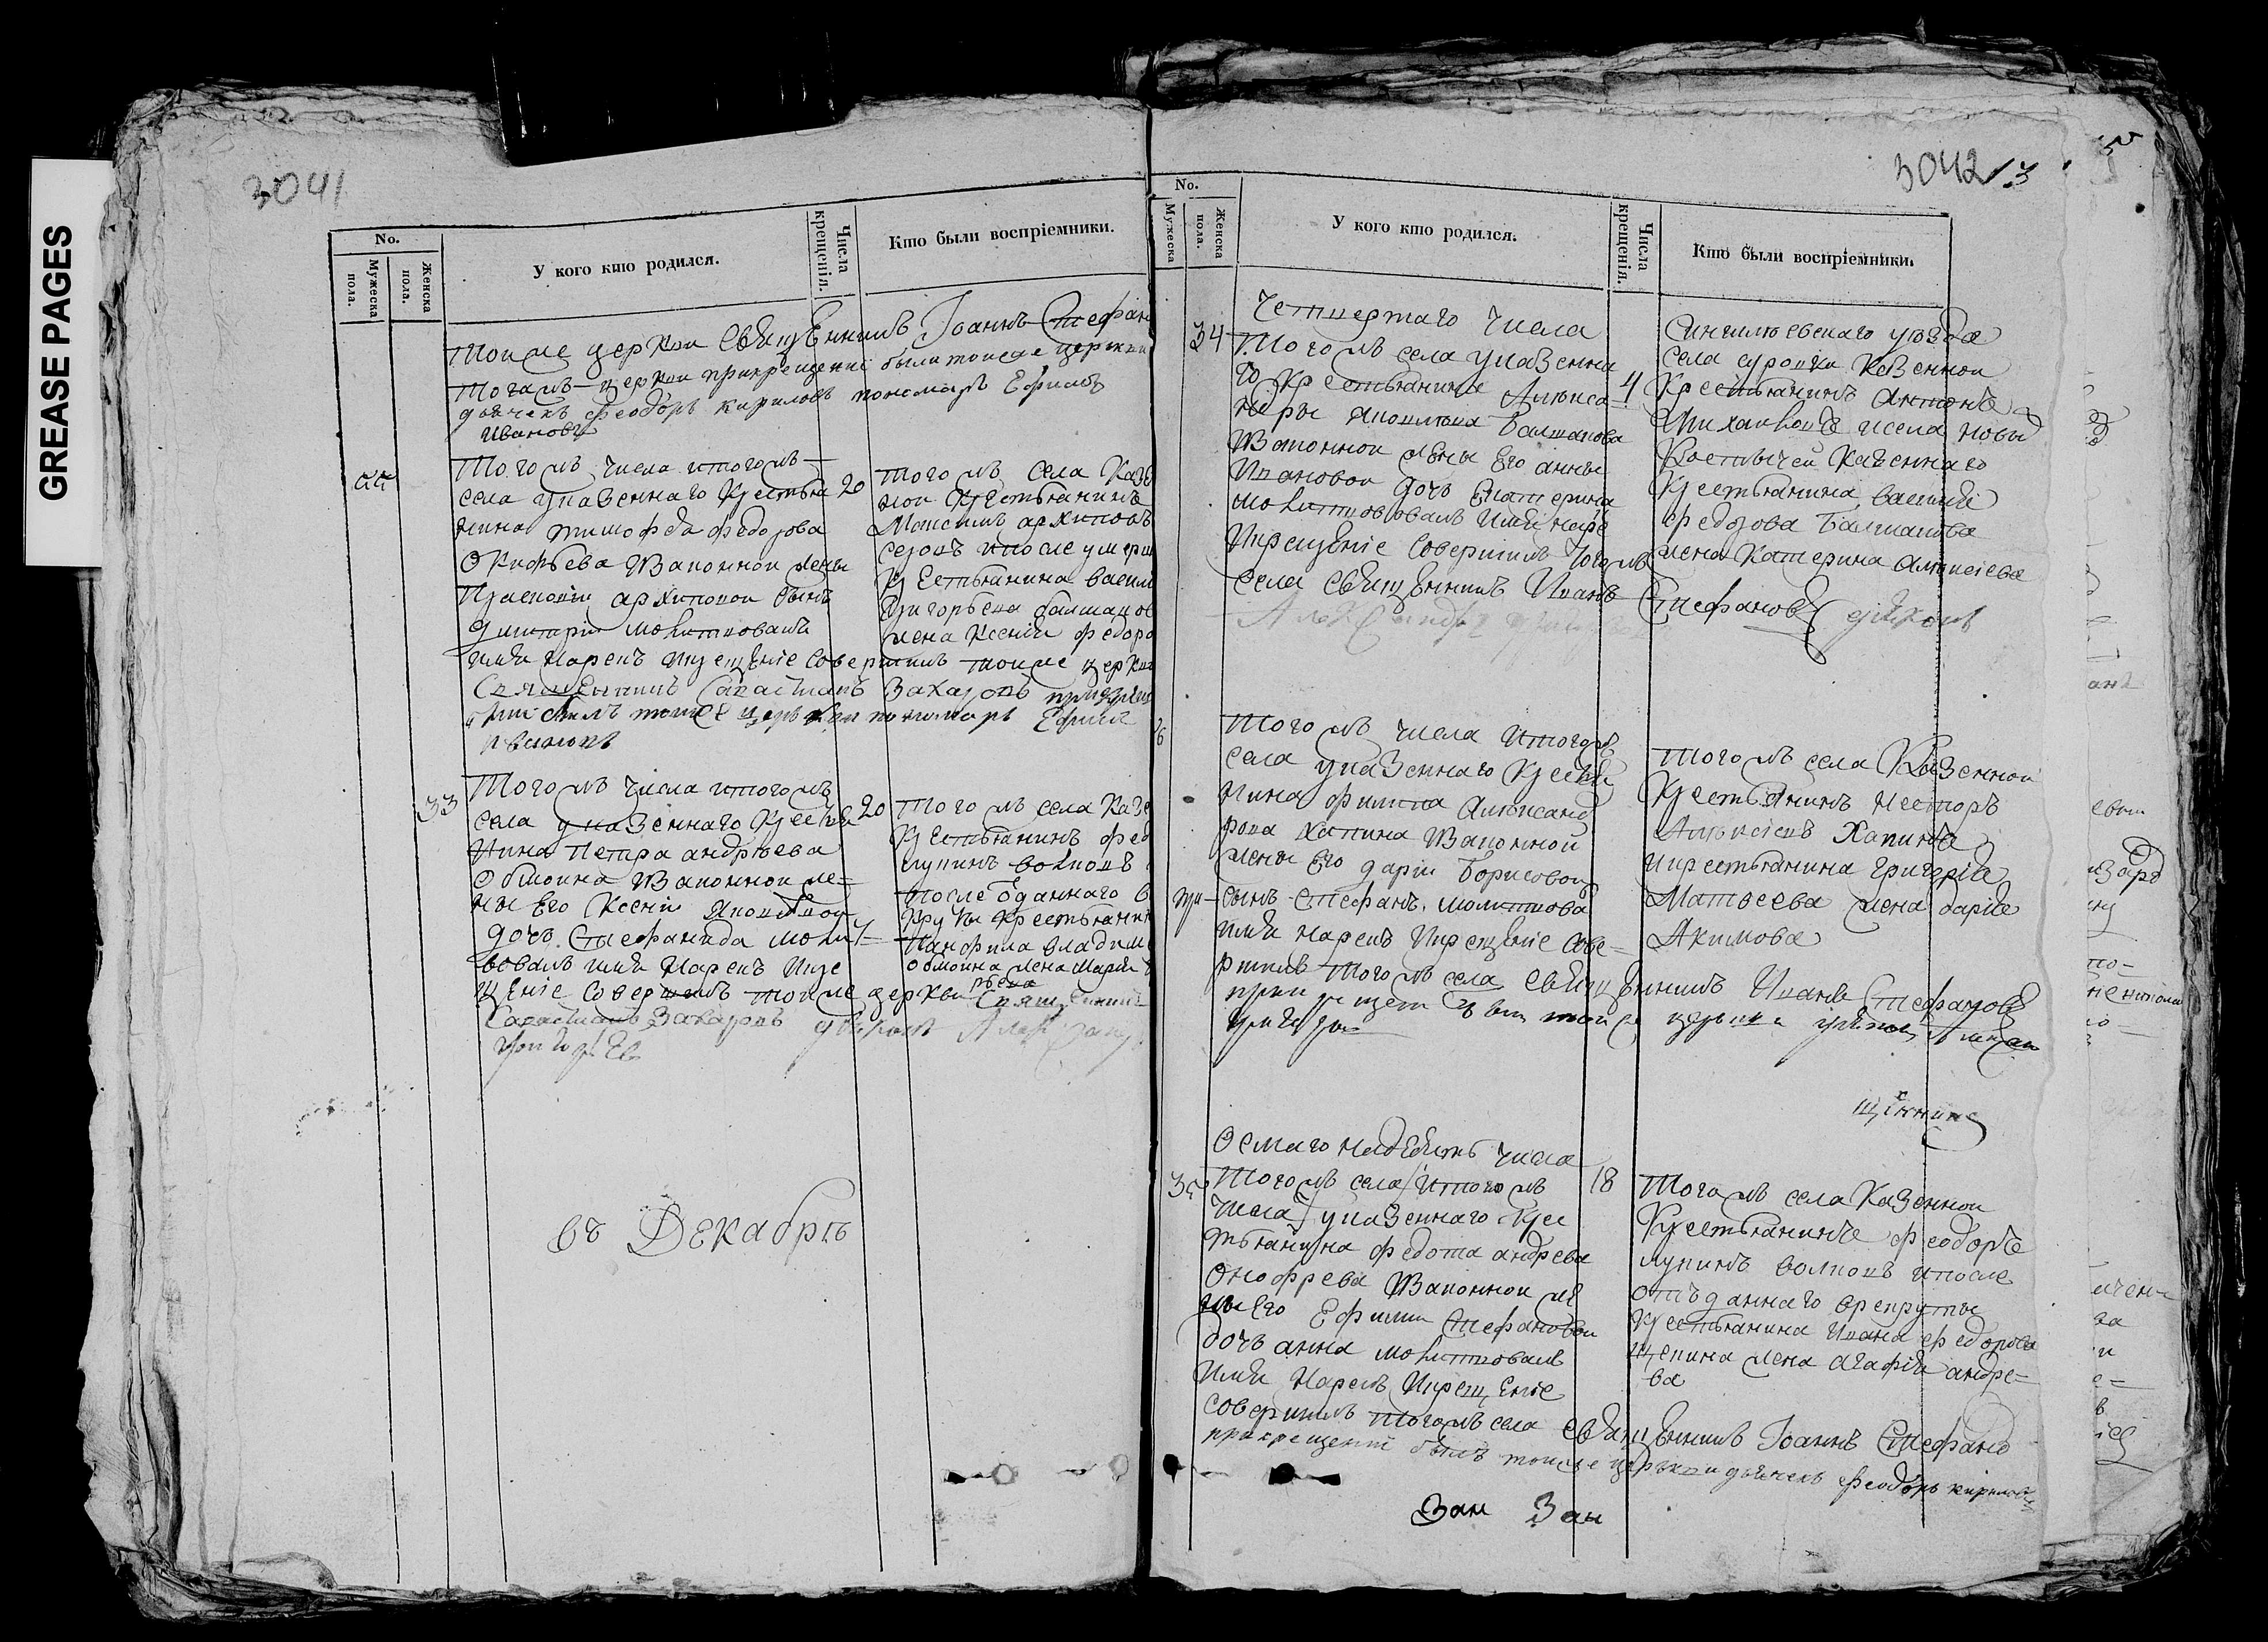 GREASE PAGES
3041
No.
Мужеска пола.
Женска пола.
У кого кто родился.
Числа крещенія.
Кто были воспріемники.
тоиже церкви священникъ Іоаннъ Стефан
тогожъ церкви прикрещеніи были тоиже церкви
дьячекъ феодоръ кириловъ пономарь Ефимъ
Ивановъ
Тогожъ числа итогожъ
села указеннаго Крестья 20
нина тимофея федорова
Окифьева Законнои жены
Прасковьи архиповои сынъ
Димитрій молитвовалъ
имя Нарекъ икрещеніе совершилъ тоиже церкви
Священникъ Савастианъ Захаровъ
тоиже церькви пономарь Ефимъ
Ивановъ
тогожъ села Казе
нои Крестьянинъ
Максимъ архиповъ
ипосле умерш
Крестьянина васил
Григорьева балшаков
жена Ксенія федоро
33
Тогожъ числа итогожъ
села указеннаго Крестья 20
Нина Петра андреева
Обмоина Законнои же=
ны Его Ксеніи Яковлевои
дочь Стефанида молит=
вовалъ имя Нарекъ Икре
щеніе совершилъ тоиже церкви Священникъ
Савастианъ Захаровъ дьяконъ Александръ
григорьевъ
тогожъ села Казе
Крестьянинъ фео
лукинъ волковъ
после отданнаго в
Круты Крестьянин
Панфила владим
обмоина жена Марія
въ Декабрѣ
3042 13
No.
Мужеска
Женска пола.
У кого кто родился.
Числа крещенія.
Кто были воспріемники.
Четвертаго числа
34 Тогожъ села указенна
го Крестьянина Алекса= 4
ндры Яковлева Балшакова
Законнои жены Его анны
Ивановои дочь Екатерина
молитвовалъ Имя наре
Икрещеніе Совершилъ тогожъ
села священникъ Иванъ Стефановъ дьяконъ
Александръ
Сингилѣевскаго уезда
села суровки Казеннои
Крестьянинъ Антонъ
Михаиловъ исела новы
Костычеи Казеннаго
Крестьянина василія
федорова Балшакова
жена Катерина Алексіева
Тогожъ числа Итогожъ
села указеннаго Крестья
нина филипа Александ
рова Хапина Законной
жены Его даріи Борисовой
сынъ Стефанъ. молитвова
имя нарекъ Икрещеніе сове=
ршилъ тогожъ села священникъ Иванъ Стефановъ
тогожъ села Казеннои
Крестьянинъ Несторъ
Алексіевъ Хапинъ
икрестьянина Григорія
Матвеева жена дарія
Акимова
щенникъ
Осмаго надесять числа
35 Тогожъ села Итогожъ 18
числа указеннаго Крес
тьянина федота андрева
Онофрева Законнои же
ны Его Ефимии Стефановои
дочь анна молитвовалъ
Имя Нарекъ Икрещеніе
совершилъ тогожъ села священникъ Іоаннъ Стефанов
прикрещеніи былъ тоиже церькви дьячекъ феодоръ кириловъ
Тогожъ села Казеннои
Крестьянинъ феодоръ
лукинъ волковъ ипосле
отъданнаго врекруты
Крестьянина Ивана федорова
щепина жена агафія андре=
ва